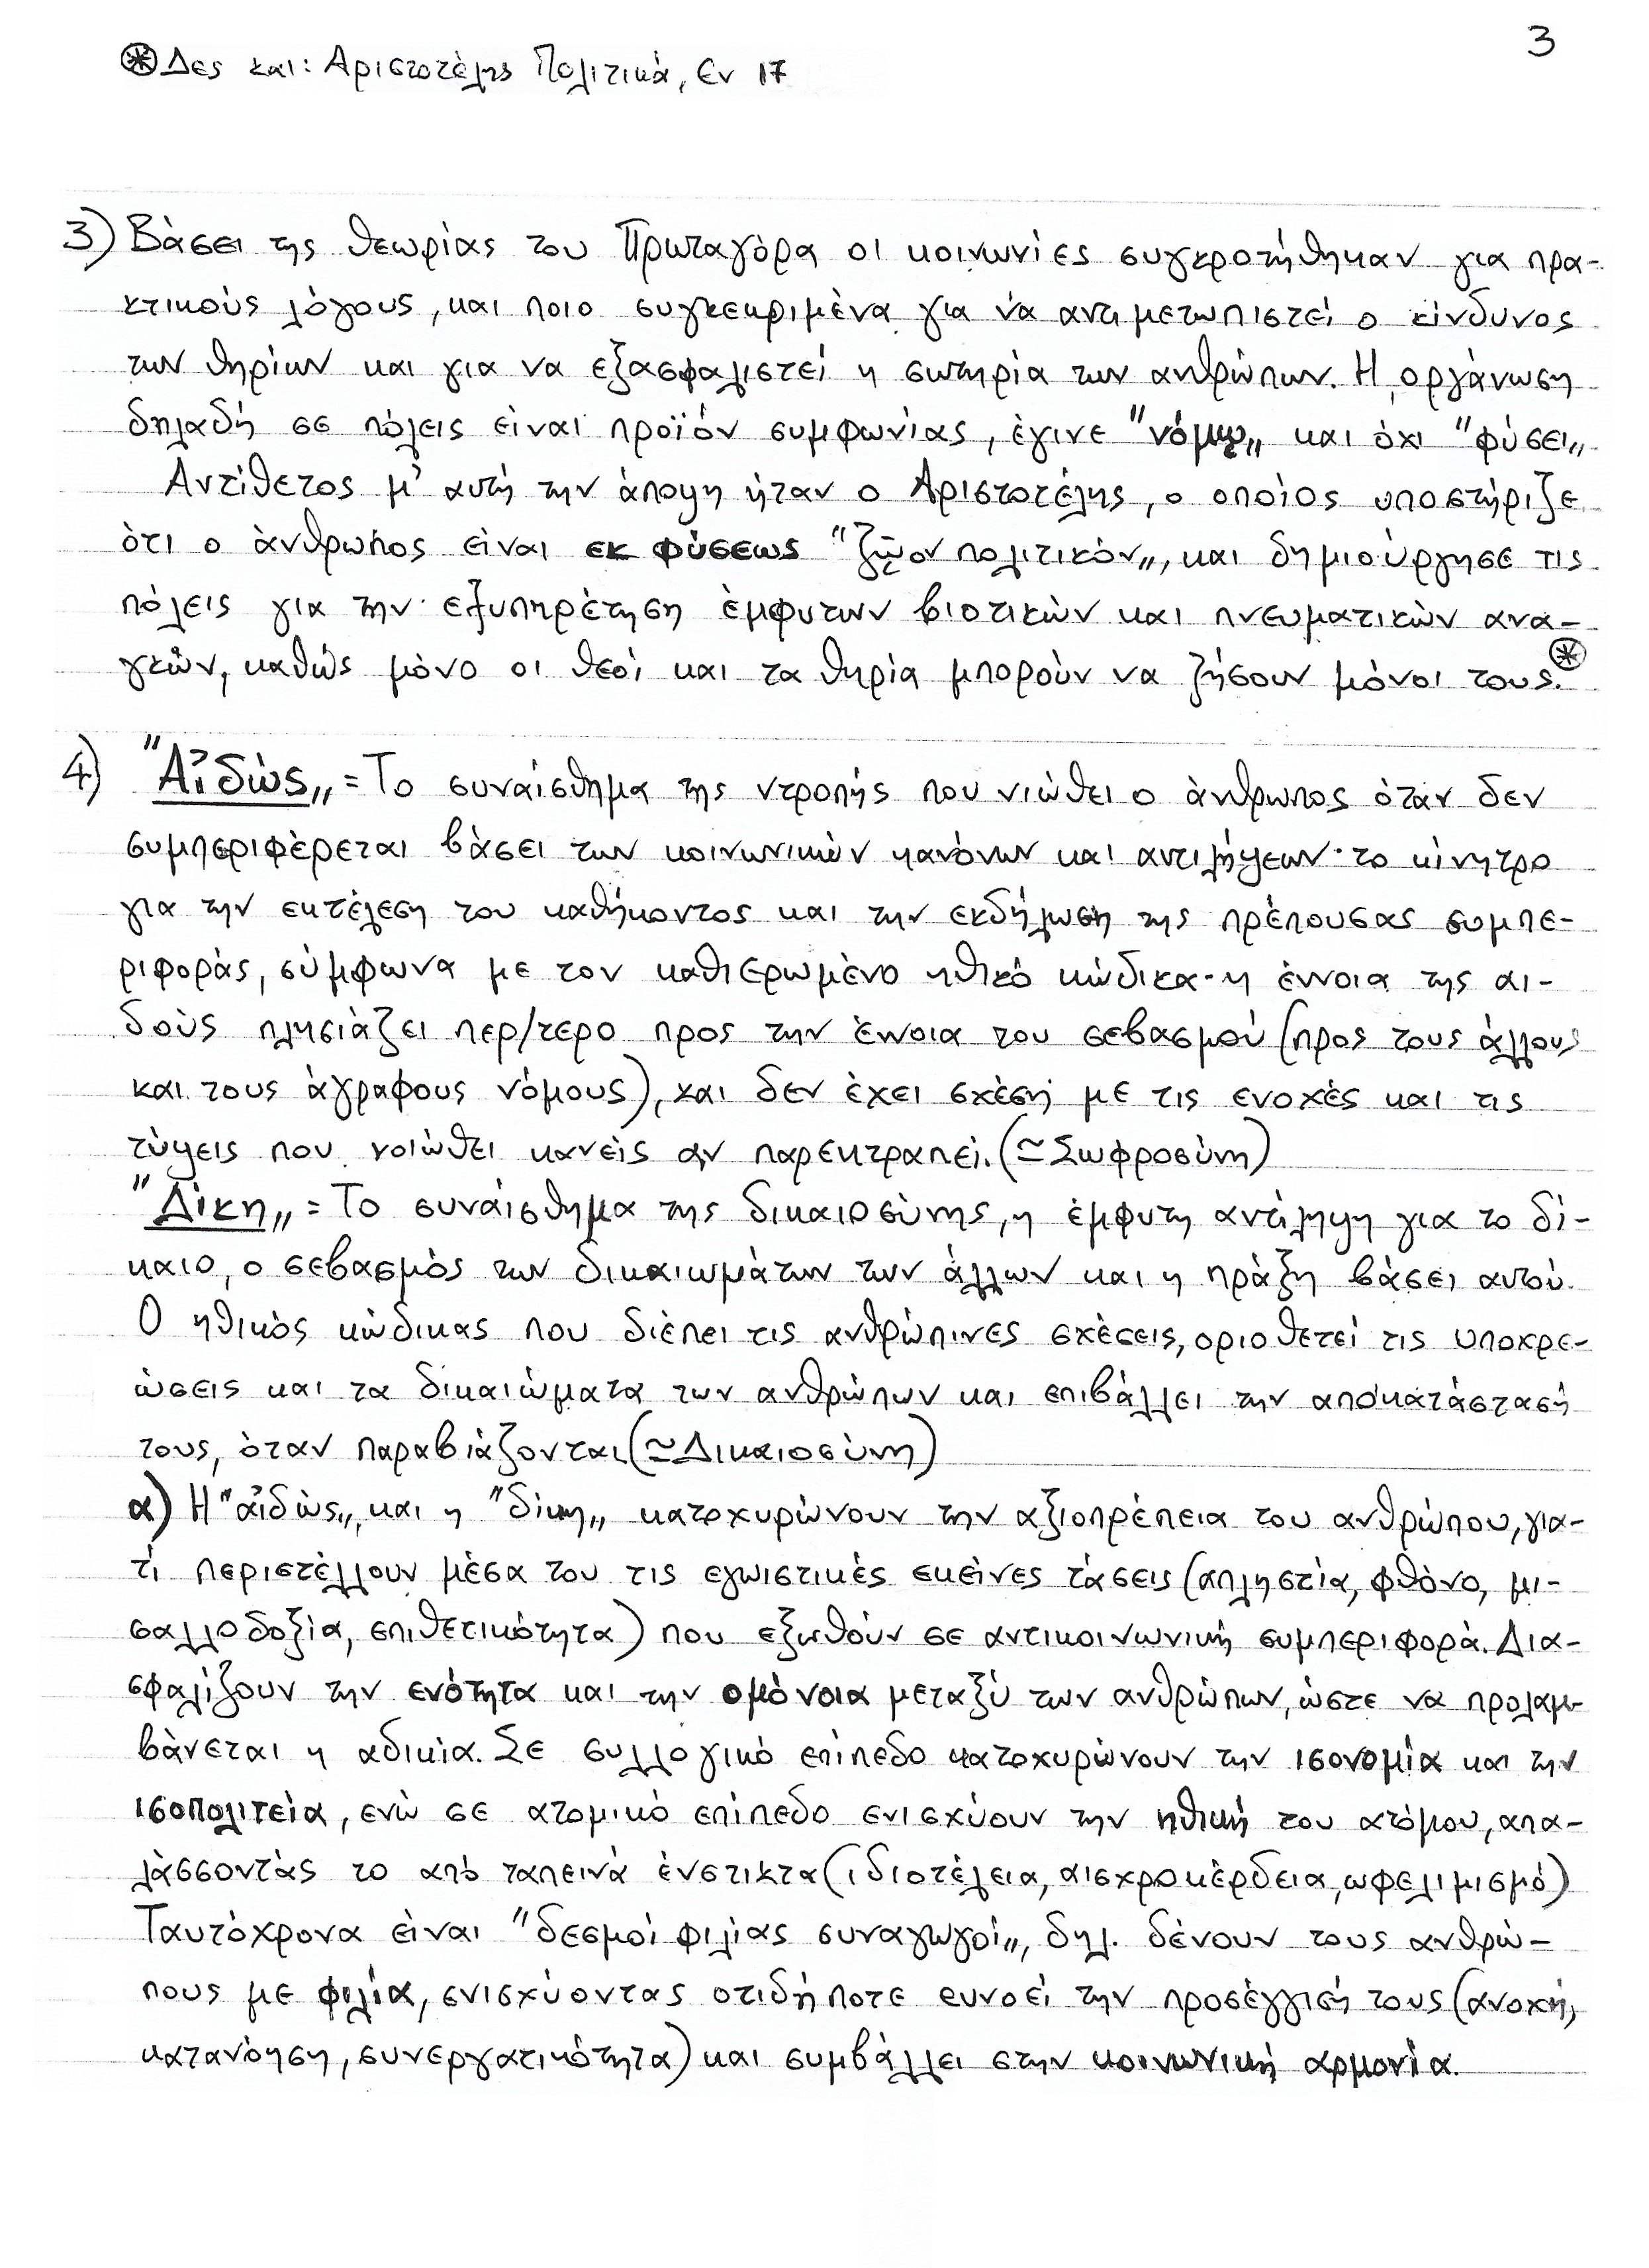 3
⊛ Δες και: Αριστοτέλης Πολιτικά, Εν 17
3) Βάσει της θεωρίας του Πρωταγόρα οι κοινωνίες συγκροτήθηκαν για πρα-
κτικούς λόγους, και ποιο συγκεκριμένα για να αντιμετωπιστεί ο κίνδυνος
των θηρίων και για να εξασφαλιστεί η σωτηρία των ανθρώπων. Η οργάνωση
δηλαδή σε πόλεις είναι προϊόν συμφωνίας, έγινε "νόμῳ„ και όχι "φύσει„
Αντίθετος μ' αυτή την άποψη ήταν ο Αριστοτέλης, ο οποίος υποστήριζε
ότι ο άνθρωπος είναι εκ φύσεως "ζῷον πολιτικόν„, και δημιούργησε τις
πόλεις για την εξυπηρέτηση έμφυτων βιοτικών και πνευματικών ανα-
γκών, καθώς μόνο οι θεοί και τα θηρία μπορούν να ζήσουν μόνοι τους.⊛
4) "Αἰδώς„ = Το συναίσθημα της ντροπής που νιώθει ο άνθρωπος όταν δεν
συμπεριφέρεται βάσει των κοινωνικών κανόνων και αντιλήψεων· το κίνητρο
για την εκτέλεση του καθήκοντος και την εκδήλωση της πρέπουσας συμπε-
ριφοράς, σύμφωνα με τον καθιερωμένο ηθικό κώδικα· η έννοια της αι-
δούς πλησιάζει περ/τερο προς την έννοια του σεβασμού (προς τους άλλους
και τους άγραφους νόμους), και δεν έχει σχέση με τις ενοχές και τις
τύψεις που νοιώθει κανείς αν παρεκτραπεί. (≃Σωφροσύνη)
"Δίκη„ = Το συναίσθημα της δικαιοσύνης, η έμφυτη αντίληψη για το δί-
καιο, ο σεβασμός των δικαιωμάτων των άλλων και η πράξη βάσει αυτού.
Ο ηθικός κώδικας που διέπει τις ανθρώπινες σχέσεις, οριοθετεί τις υποχρε-
ώσεις και τα δικαιώματα των ανθρώπων και επιβάλλει την αποκατάστασή
τους, όταν παραβιάζονται (≃Δικαιοσύνη)
α) Η "αἰδώς„ και η "δίκη„ κατοχυρώνουν την αξιοπρέπεια του ανθρώπου, για-
τί περιστέλλουν μέσα του τις εγωιστικές εκείνες τάσεις (απληστία, φθόνο, μι-
σαλλοδοξία, επιθετικότητα) που εξωθούν σε αντικοινωνική συμπεριφορά. Δια-
σφαλίζουν την ενότητα και την ομόνοια μεταξύ των ανθρώπων, ώστε να προλαμ-
βάνεται η αδικία. Σε συλλογικό επίπεδο κατοχυρώνουν την ισονομία και την
ισοπολιτεία, ενώ σε ατομικό επίπεδο ενισχύουν την ηθική του ατόμου, απα-
λάσσοντάς το από ταπεινά ένστικτα (ιδιοτέλεια, αισχροκέρδεια, ωφελιμισμό)
Ταυτόχρονα είναι "δεσμοί φιλίας συναγωγοί„, δηλ. δένουν τους ανθρώ-
πους με φιλία, ενισχύοντας οτιδήποτε ευνοεί την προσέγγισή τους (ανοχή,
κατανόηση, συνεργατικότητα) και συμβάλλει στην κοινωνική αρμονία.